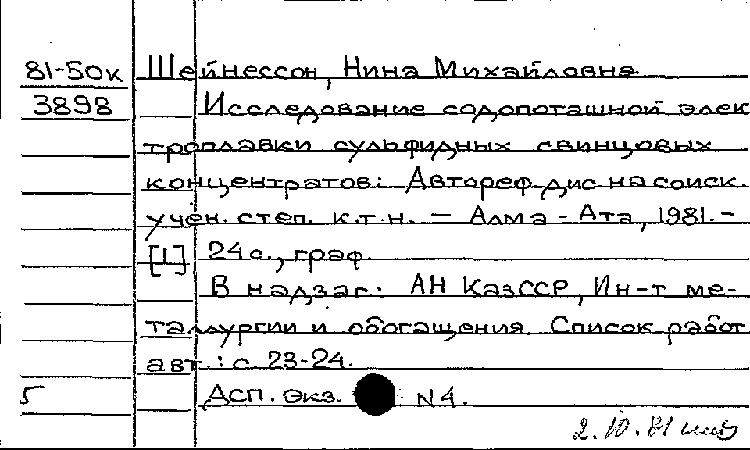 81-50к Шейнессон, Нина Михайловна
3898 Исследование содопоташной элек
троплавки сульфидных свинцовых
концентратов: Автореф. дис на соиск.
учен. степ. к.т.н. — Алма-Ата, 1981. -
[1] 24 с., граф.
В надзаг.: АН КазССР, Ин-т ме-
таллургии и обогащения. Список работ
авт.: с. 23-24.
5 Дсп. Экз. N4.
2.10.81